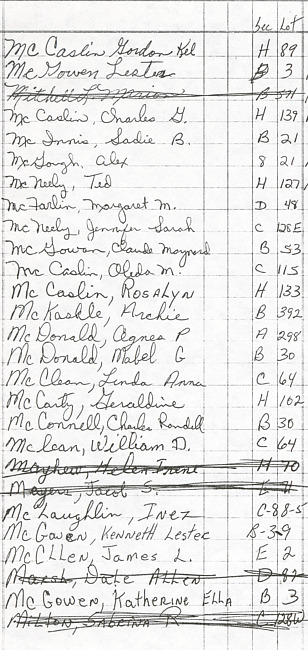 Sec Lot
Mc Caslin Gordon Kel H 89
Mc Gowen Lester B 3
Mitchell L. Marion B 371
Mc Caslin, Charles G. H 139
Mc Innis, Sadie B. B 21
McGough, Alex 8 21
McNeely, Ted H 127
McFarlin, Margaret M. D 48
McNeely, Jennifer Sarah C 128E
McGowan, Claude Maynord B 53
Mc Caslin, Oleda M. C 115
Mc Caslin, ROSALYN H 133
Mc Kaskle, Archie B 392
McDonald, Agnes P A 298
McDonald, Mabel G B 30
McClean, Linda Anna C 64
McCarty, Geraldine H 102
McConnell, Charles Randell B 30
Mclean, William D. C 64
Mayhew, Helen Irene H 70
Mayers, Jacob S. E 71
McLaughlin, Inez C-88-5
McGowen, Kenneth Lester B-3-9
McCLLen, James L. E 2
Marsh, Dale Allen D 82
McGowen, Katherine Ella B 3
Milton, Sabrina R C 128W